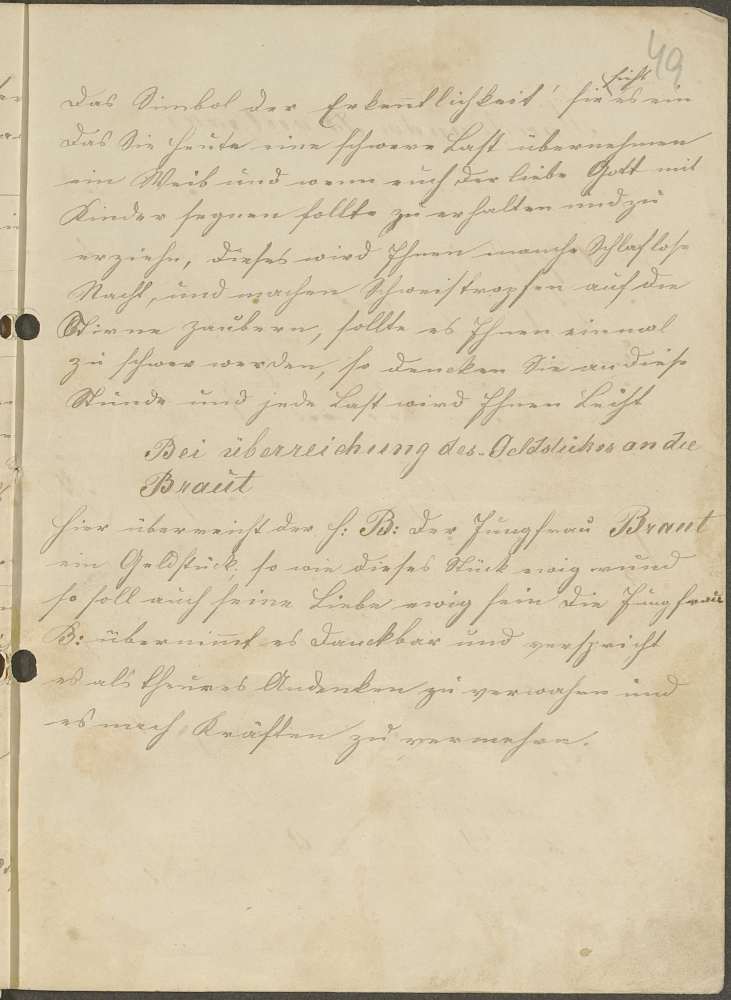 49
Das Simbol der Erkentlichkeit! sie sieht es ein
Das Sie heute eine schwere Last übernehmen
ein Weib und wenn euch der liebe Gott mit
Kinder segnen sollte zu erhalten und zu
erziehn, dieses wird Ihnen manche Schlaflose
Nacht, und machen Schweistropfen auf die
Stirne zaubern, sollte es Ihnen einmal
zu schwer werden, so dencken Sie an diese
Stunde und jede Last wird Ihnen Leicht
Bei überreichung des Geldstückes an die
Braut
Hier überreicht der H: B: der Jungfrau Braut
ein Geldstück, so wie dieses Stück ewig rund
so soll auch seine Liebe ewig sein die Jungfrau
B: übernimmt es Danckbar und verspricht
es als theures Andenken zu verwahrn und
es nach Kräften zu vermehrn.